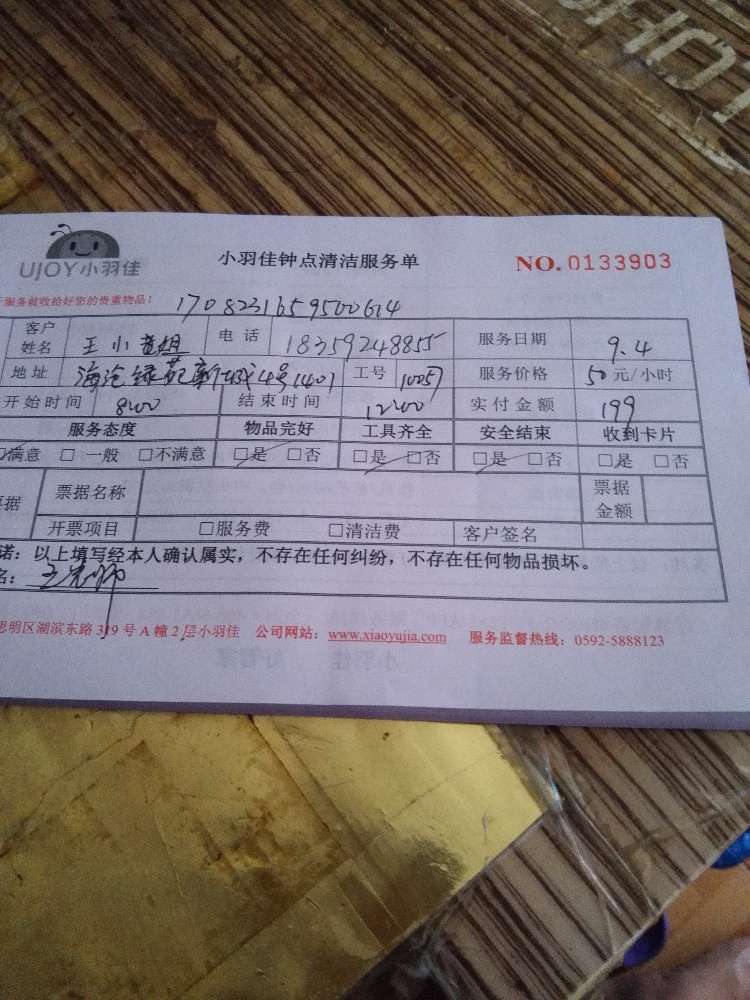 UJOY小羽佳
小羽佳钟点清洁服务单
NO. 0133903
服务前收拾好您的贵重物品!
1708231659500614
客户姓名 王小姐 电话 18359248855 服务日期 9.4
地址 海沧绿苑新城4号1401 工号 服务价格 50元/小时
开始时间 8:00 结束时间 12:00 实付金额 199
服务态度 物品完好 工具齐全 安全结束 收到卡片
□满意 □一般 □不满意 □是 □否 □是 □否 □是 □否 □是 □否
据 票据名称 票据金额
开票项目 □服务费 □清洁费 客户签名
诺:以上填写经本人确认属实,不存在任何纠纷,不存在任何物品损坏。
名:
思明区湖滨东路319号A幢2层小羽佳 公司网站:www.xiaoyujia.com 服务监督热线:0592-5888123